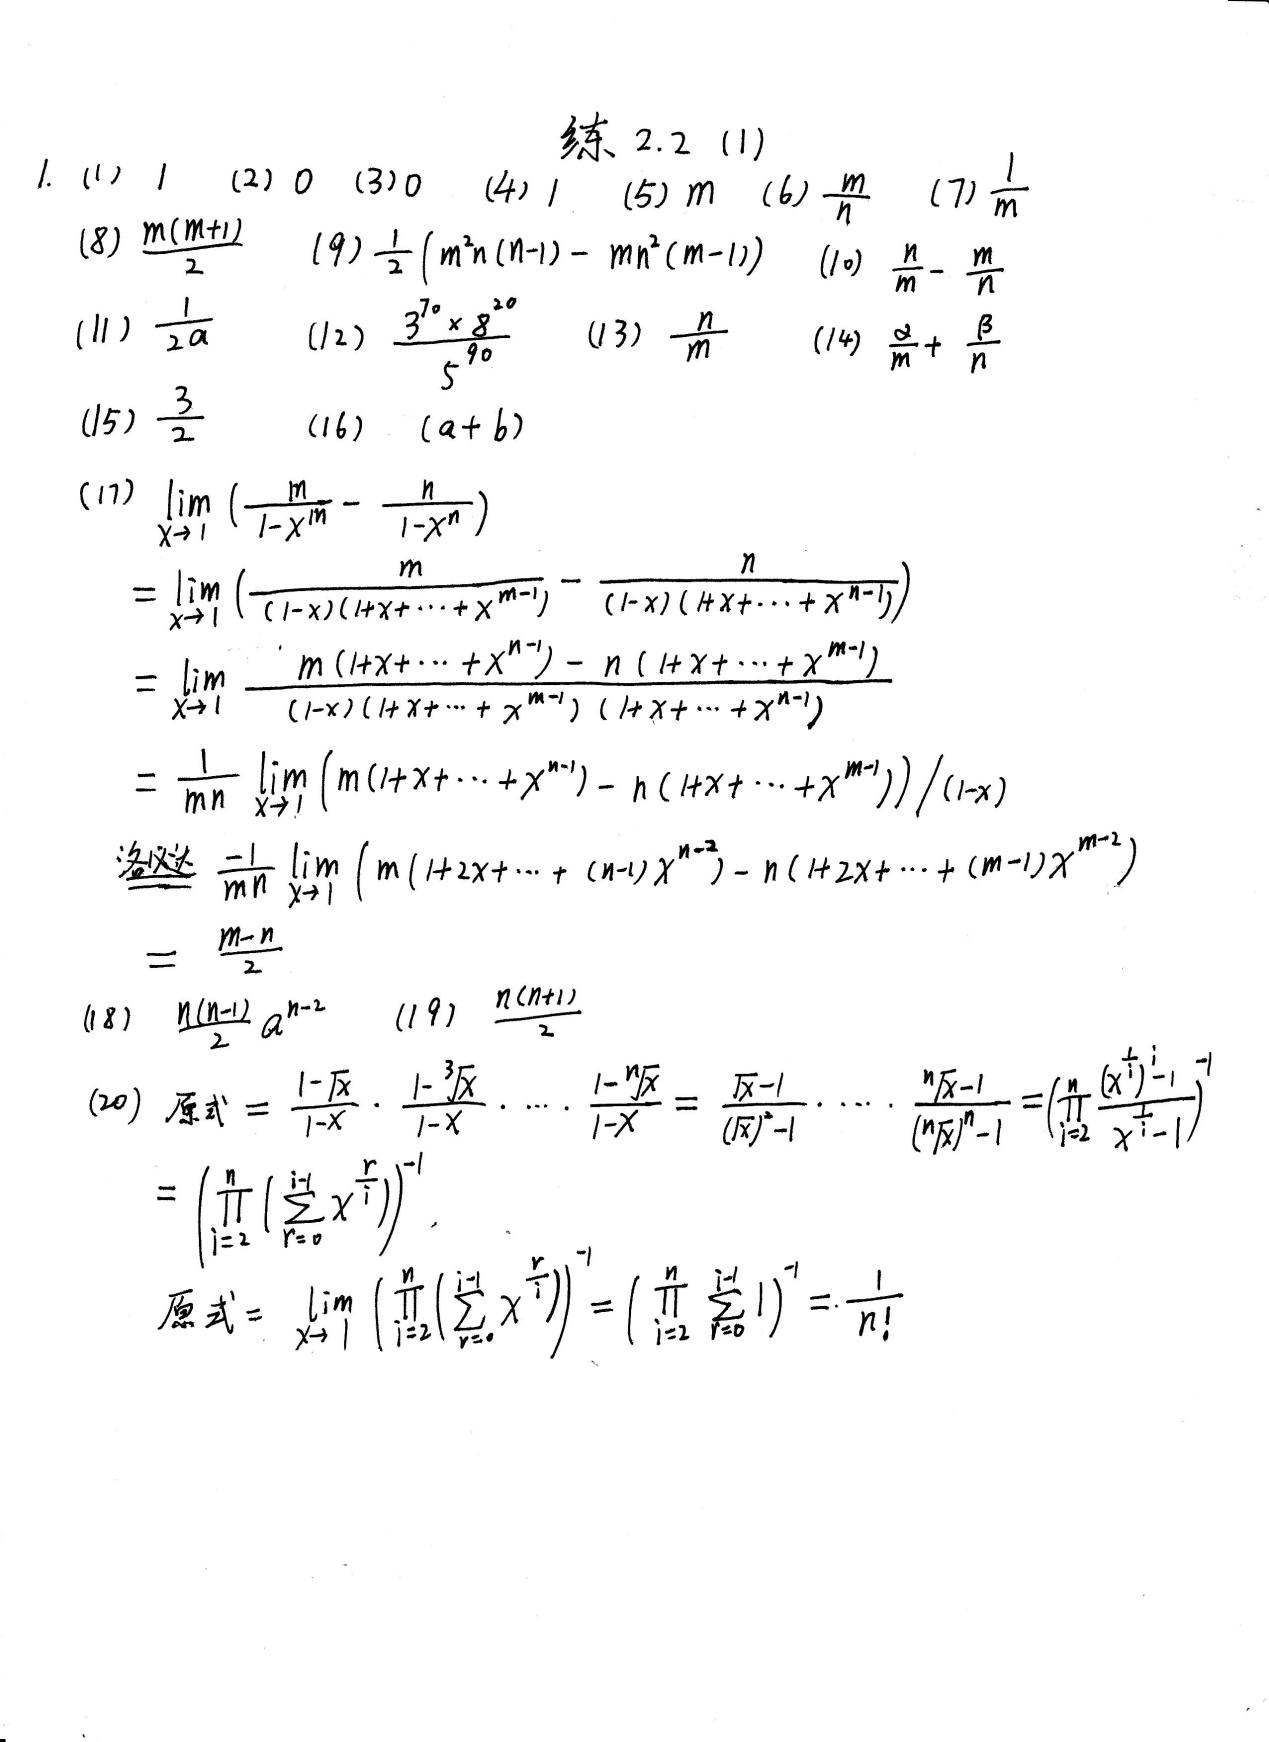 练 2.2 (1)
1. (1) 1 (2) 0 (3) 0 (4) 1 (5) m (6) m/n (7) 1/m
(8) m(m+1)/2 (9) 1/2 (m²n(n-1) - mn²(m-1)) (10) n/m - m/n
(11) 1/2a (12) 3^70 × 8^20 / 5^90 (13) n/m (14) α/m + β/n
(15) 3/2 (16) (a+b)
(17) lim_{x→1} (m/(1-x^m) - n/(1-x^n))
= lim_{x→1} (m/((1-x)(1+x+⋯+x^{m-1})) - n/((1-x)(1+x+⋯+x^{n-1})))
= lim_{x→1} (m(1+x+⋯+x^{n-1}) - n(1+x+⋯+x^{m-1})) / ((1-x)(1+x+⋯+x^{m-1})(1+x+⋯+x^{n-1}))
= 1/mn lim_{x→1} (m(1+x+⋯+x^{n-1}) - n(1+x+⋯+x^{m-1}))/(1-x)
洛必达 -1/mn lim_{x→1} (m(1+2x+⋯+(n-1)x^{n-2}) - n(1+2x+⋯+(m-1)x^{m-2})
= (m-n)/2
(18) n(n-1)/2 a^{n-2} (19) n(n+1)/2
(20) 原式 = (1-√x)/(1-x) · (1-³√x)/(1-x) · ⋯ · (1-ⁿ√x)/(1-x) = (√x-1)/((√x)²-1) · ⋯ · (ⁿ√x-1)/((ⁿ√x)^n-1) = (∏_{i=2}^{n} ((x^{1/i})^i-1)/(x^{1/i}-1))^{-1}
= (∏_{i=2}^{n} (∑_{r=0}^{i-1} x^{r/i}))^{-1}.
原式 = lim_{x→1} (∏_{i=2}^{n} (∑_{r=0}^{i-1} x^{r/i}))^{-1} = (∏_{i=2}^{n} ∑_{r=0}^{i-1} 1)^{-1} = 1/n!